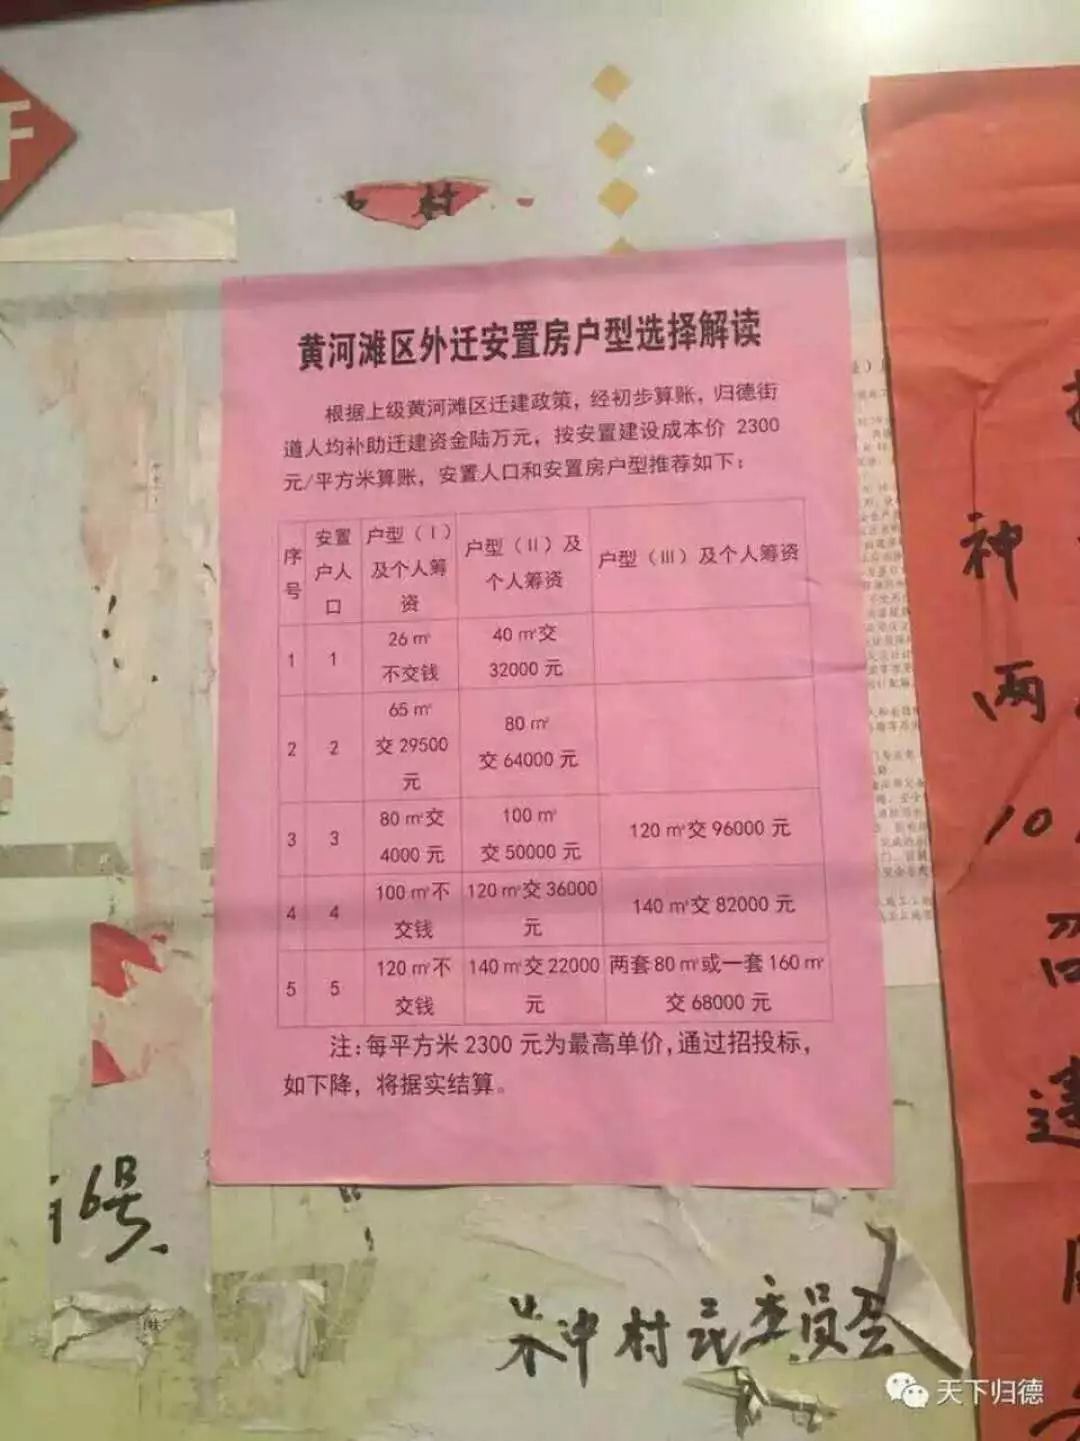 村
黄河滩区外迁安置房户型选择解读
根据上级黄河滩区迁建政策，经初步算账，归德街
道人均补助迁建资金陆万元，按安置建设成本价 2300
元/平方米算账，安置人口和安置房户型推荐如下：
序号 安置户人口 户型（Ⅰ）及个人筹资 户型（Ⅱ）及个人筹资 户型（Ⅲ）及个人筹资
1 1 26 ㎡不交钱 40 ㎡交32000 元
2 2 65 ㎡交 29500元 80 ㎡交 64000 元
3 3 80 ㎡交4000 元 100 ㎡交 50000 元 120 ㎡交 96000 元
4 4 100 ㎡不交钱 120 ㎡交 36000元 140 ㎡交 82000 元
5 5 120 ㎡不交钱 140 ㎡交 22000元 两套 80 ㎡或一套 160 ㎡交 68000 元
注：每平方米 2300 元为最高单价，通过招投标，
如下降，将据实结算。
神
两
10
6号
中村民委员会
天下归德